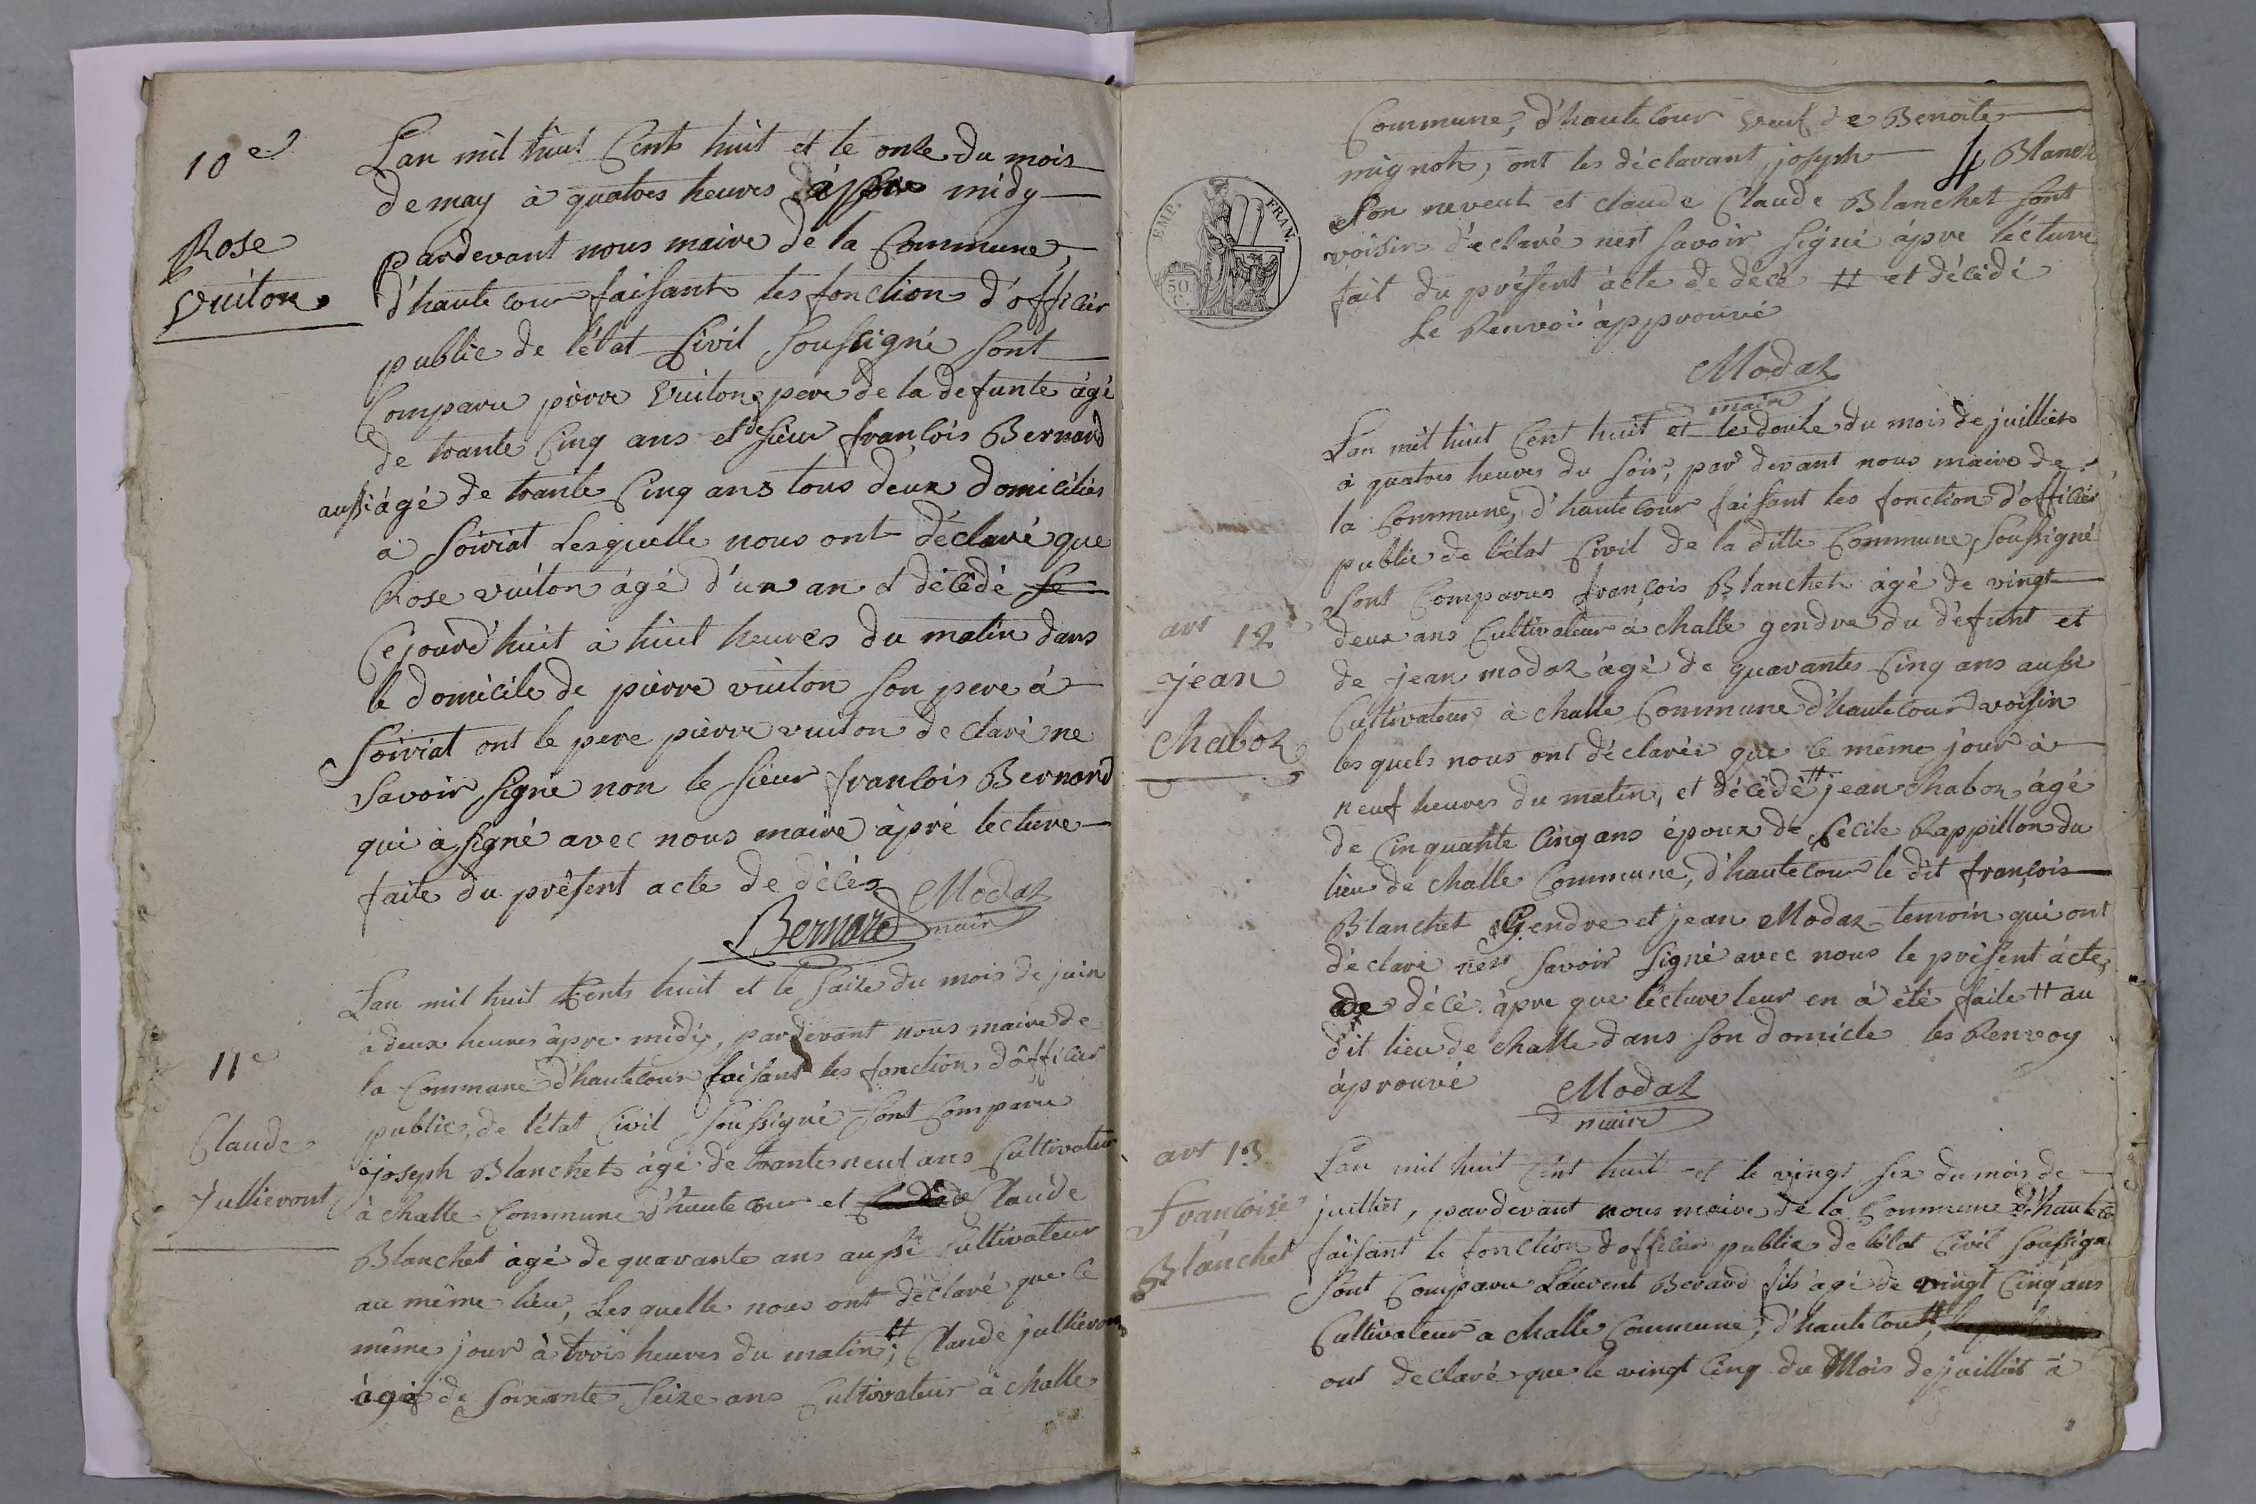 10e
Rose
Vuiton
Lan mil huit Cents huit et le onze du mois
de may à quatres heures àpprè midy
pardevant nous maire de la Commune
d'hautecour faisant les fonction d'officier
public de l'état Civil soussigné sont
Comparu pierre Vuiton pere de la defunte àgé
de trante Cinq ans et de sieur francois Bernard
aussi àgé de trante Cinq ans tous deux domiciliés
à Soiriat Lesquelle nous ont déclaré que
Rose vuiton àgé d'un an et décédé
Cejourd'huit à huit heures du matin dans
le domicile de pierre vuiton son pere à
Soiriat ont le pere pierre vuiton declaré ne
savoir signé non le sieur francois Bernard
qui à signé avec nous maire àpré lecture
faite du présent acte de décés
Modaz
Bernard maire
11e
Claude
Jullieront
Lan mil huit Cents huit et le saize du mois de juin
à deux heures àpre midi, pardevant nous maire de
la Commune d'hautecour faisant les fonction d'officier
public, de l'état Civil soussigné sont Comparu
joseph Blanchet àgé de tranteneuf ans Cultivateur
à challe Commune d'hautecour et Claude
Blanchet àgé de quarante ans aussi Cultivateur
au même lieu, Lesquelle nous ont déclaré que le
même jour à trois heures du matin # Claude jullieron
àgé de soixante seize ans Cultivateur à challe
EMP. FRAN.
50
C.
Commune, d'hautecour veuf de Benoite
mignot, ont les déclarant, joseph Blanch
son neveut et claude Claude Blanchet sont
voisin déclaré nest savoir signé àpre lécture
fait du présent àcte de décé # et décédé
Le Renvoi àpprouvé
Modaz
maire
Lan mil huit Cent huit et le douze du mois de juilliet
à quatres heures du soir, par devant nous maire de
la Commune, d'hautecour faisant les fonction d'officier
public de l'état Civil de la ditte Commune, soussigné
sont Comparus françois Blanchet àgé de vingt
deux ans Cultivateur à challe gendre du défunt et
de jean modaz àgé de quarantes Cinq ans aussi
Cultivateur à challe Commune d'hautecour voisin
les quels nous ont déclarés que le même jour à
neuf heures du matin, et décédé # jean chaboz àgé
de Cinquante Cinq ans époux de Cécile Rappillon du
lieu de challe Commune, d'hautecour le dit françois
Blanchet Gendre et jean Modaz temoin qui ont
déclaré nest savoir signé avec nous le présent àcte
de décé àpre que lécture leur en à été faite # au
dit lieu de challe dans son domicile les Renvoy
àprouvé
Modaz
maire
art 12
jean
chaboz
art 13
Françoise
Blanchet
Lan mil huit Cent huit et le vingt six du mois de
juilliet, pardevant nous maire de la Commune d'hauteco
faisant le fonction d'officier public de l'état Civil soussign
sont Comparu Laurent Berard fils àgé de vingt Cinq ans
Cultivateur a challe Commune, d'hautecour #
ont declaré que le vingt Cinq du Mois de juilliet à